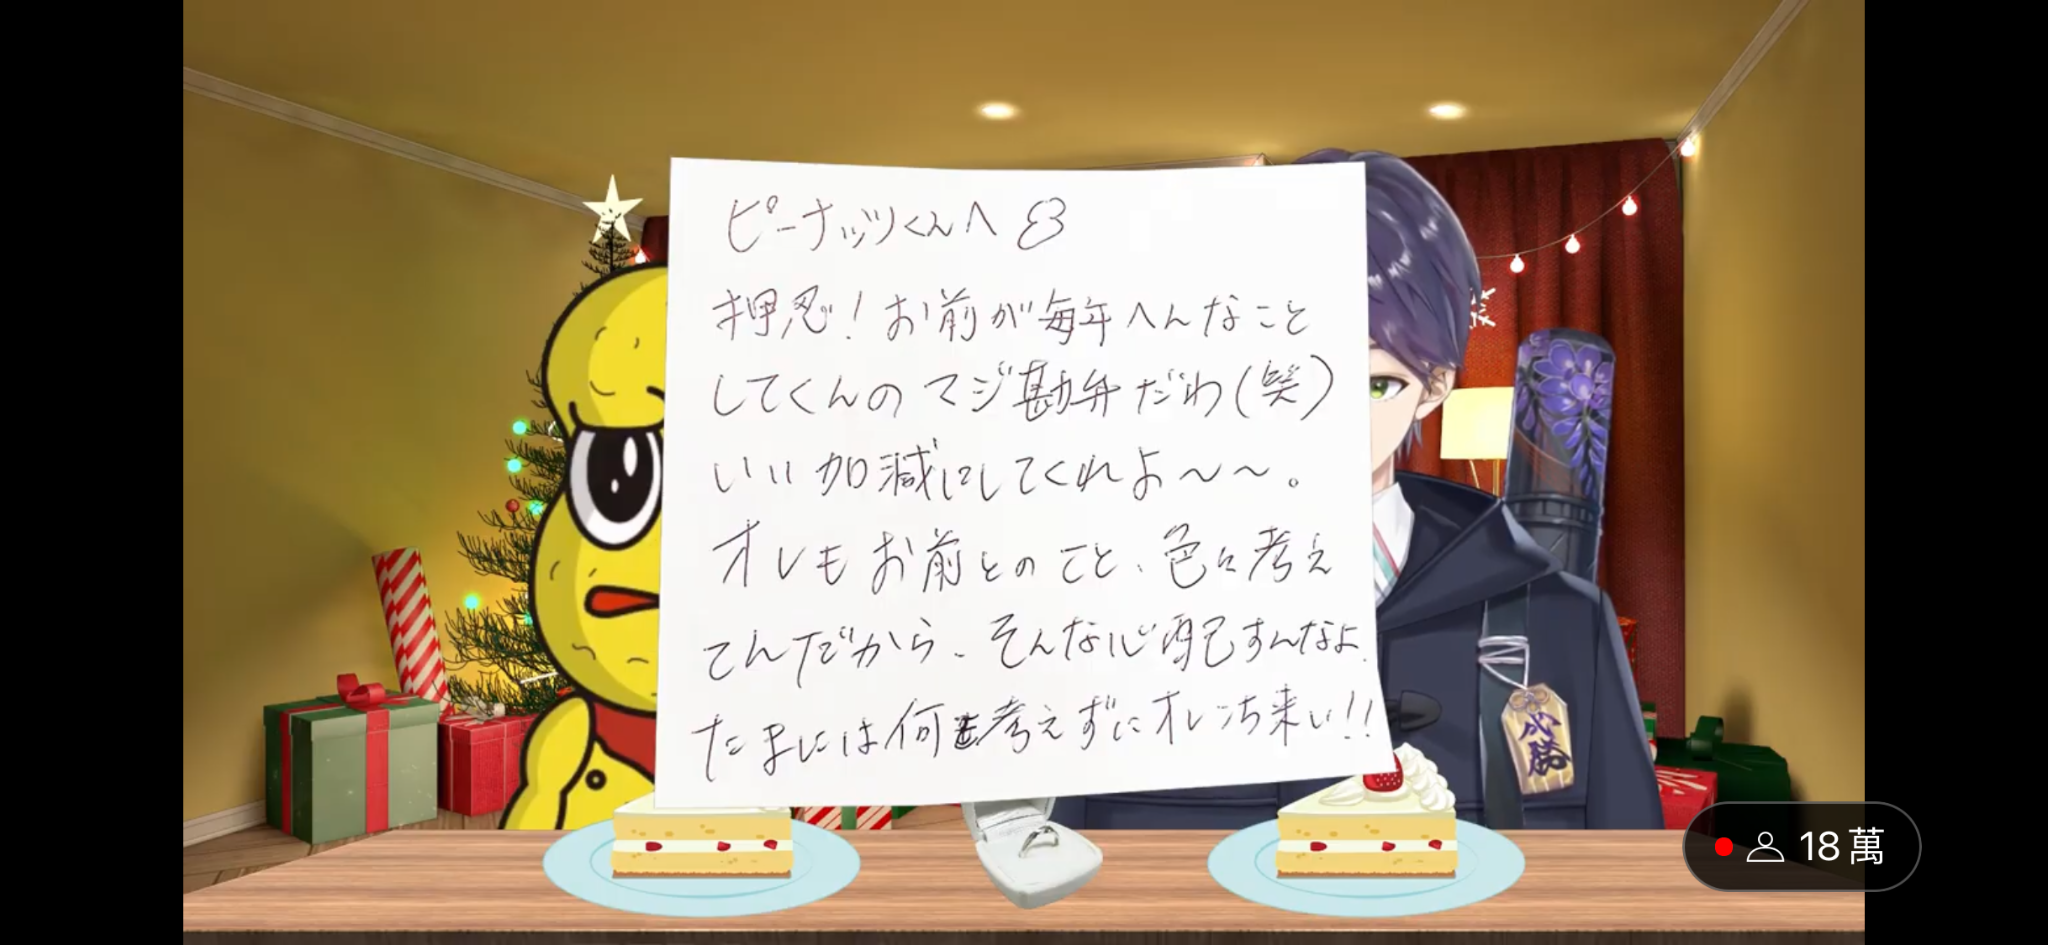 ピーナッツくんへ
押忍！お前が毎年へんなこと
してくんのマジ勘弁だわ(笑)
いい加減にしてくれよ〜〜。
オレもお前とのこと、色々考え
てんだから、そんな心配すんなよ.
たまには何も考えずにオレんち来い!!
必勝
18萬